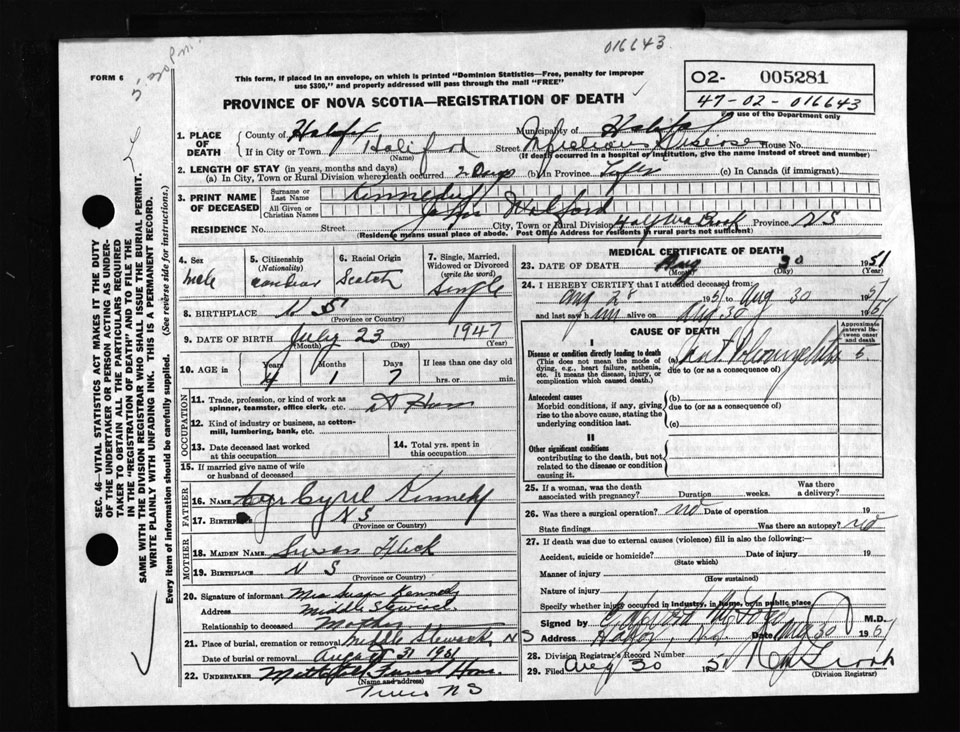 016643
5:30 p.m.
FORM 6
This form, if placed in an envelope, on which is printed "Dominion Statistics—Free, penalty for improper
use $300," and properly addressed will pass through the mail "FREE"
PROVINCE OF NOVA SCOTIA—REGISTRATION OF DEATH
O2- 005281
47-02-016643
For use of the Department only
1. PLACE OF DEATH
County of Halifax Municipality of Halifax
If in City or Town Halifax Street Infectious Disease House No.
(Name) (If death occurred in a hospital or institution, give the name instead of street and number)
2. LENGTH OF STAY (in years, months and days)
(a) In City, Town or Rural Division where death occurred 2 Days (b) In Province Life (c) In Canada (if immigrant)
3. PRINT NAME OF DECEASED
Surname or Last Name Kennedy
All Given or Christian Names John
RESIDENCE No. Street City, Town or Rural Division Province NS
(Residence means usual place of abode. Post Office Address for residents in rural parts not sufficient)
4. Sex male
5. Citizenship (Nationality)
6. Racial Origin Scotch
7. Single, Married, Widowed or Divorced (write the word) Single
8. BIRTHPLACE N S
(Province or Country)
9. DATE OF BIRTH July 23 1947
(Month) (Day) (Year)
10. AGE in Years 4 Months 1 Days 7 If less than one day old hrs. or min.
OCCUPATION
11. Trade, profession, or kind of work as spinner, teamster, office clerk, etc. At Home
12. Kind of industry or business, as cotton-mill, lumbering, bank, etc.
13. Date deceased last worked at this occupation
14. Total yrs. spent in this occupation
15. If married give name of wife or husband of deceased
FATHER
16. NAME Cyril Kennedy
17. BIRTHPLACE N S
(Province or Country)
MOTHER
18. MAIDEN NAME Susan
19. BIRTHPLACE N S
(Province or Country)
20. Signature of informant Mrs Susan Kennedy
Address Middle Stewiacke
Relationship to deceased Mother
21. Place of burial, cremation or removal Middle Stewiacke, N S
Date of burial or removal August 31 1951
22. UNDERTAKER Funeral Home
(Name and address)
Truro NS
MEDICAL CERTIFICATE OF DEATH
23. DATE OF DEATH Aug 30 1951
(Month) (Day) (Year)
24. I HEREBY CERTIFY that I attended deceased from:
Aug 28 1951 to Aug 30 1951
and last saw him alive on Aug 30 1951
CAUSE OF DEATH
Approximate interval between onset and death
I
Disease or condition directly leading to death
(This does not mean the mode of dying, e.g., heart failure, asthenia, etc. It means the disease, injury, or complication which caused death.)
(a)
due to (or as a consequence of)
Antecedent causes
Morbid conditions, if any, giving rise to the above cause, stating the underlying condition last.
(b)
due to (or as a consequence of)
(c)
II
Other significant conditions
contributing to the death, but not related to the disease or condition causing it.
25. If a woman, was the death associated with pregnancy? Duration weeks. Was there a delivery?
26. Was there a surgical operation? no Date of operation 19
State findings Was there an autopsy? no
27. If death was due to external causes (violence) fill in also the following:
Accident, suicide or homicide? Date of injury 19
(State which)
Manner of injury
(How sustained)
Nature of injury
Specify whether injury occurred in industry, in home, or in public place
Signed by M.D.
Address Date Aug 30 1951
28. Division Registrar's Record Number
29. Filed Aug 30 1951
(Division Registrar)
SEC. 46—VITAL STATISTICS ACT MAKES IT THE DUTY
OF THE UNDERTAKER OR PERSON ACTING AS UNDER-
TAKER TO OBTAIN ALL THE PARTICULARS REQUIRED
IN THE "REGISTRATION OF DEATH" AND TO FILE THE
SAME WITH THE DIVISION REGISTRAR WHO SHALL ISSUE THE BURIAL PERMIT.
WRITE PLAINLY WITH UNFADING INK. THIS IS A PERMANENT RECORD.
Every item of information should be carefully supplied. (See reverse side for instructions.)